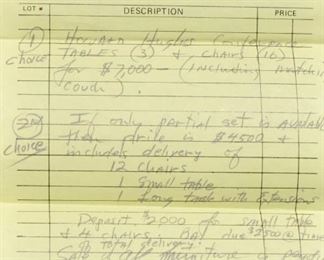 LOT # DESCRIPTION PRICE
① Howard Hughes Conference
choice TABLES (3) & CHAIRS (16)
for $7,000 — (Including matchin
Couch).
2nd If only partial set is AVAILABLE
choice then price is $4500 &
includes delivery of
12 chairs
1 Small table
1 Long table with Extensions
Deposit $2000 for small table
& 4 chairs. BAL due $2500 @ time
of total delivery.
Sale of all furniture is